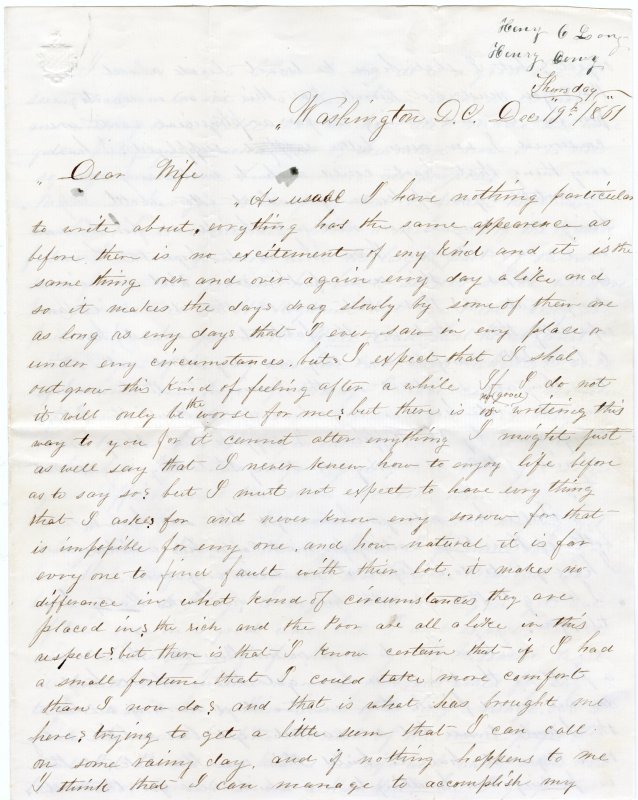 Henry C Long
Henry Curry
Thursday
Washington D.C. Dec "19th/1861"
"Dear Wife
"As usuall I have nothing particular
to write about. evrything has the same appearence as
before there is no excitement of eny kind and it is the
same thing over and over again evry day alike and
so it makes the days drag slowly by some of them are
as long as eny days that I ever saw in eny place or
under eny circumstances. but I expect that I shal
outgrow this kind of feeling after a while If I do not
it will only be the worse for me; but there is no good in writeing this
way to you for it cannot alter enything I might just
as well say that I never knew how to enjoy life before
as to say so; but I must not expect to have evrything
that I ask; for and never know eny sorrow for that
is impossible for eny one. and how natural it is for
evry one to find fault with thier lot. it makes no
difference in what kind of circumstances they are
placed in; the rich and the Poor are all alike in this
respect; but there is that I know certain that if I had
a small fortune that I could take more comfort
than I now do; and that is what has brought me
here; trying to get a little sum that I can call
on some rainy day. and if nothing happens to me
I think that I can manage to accomplish my